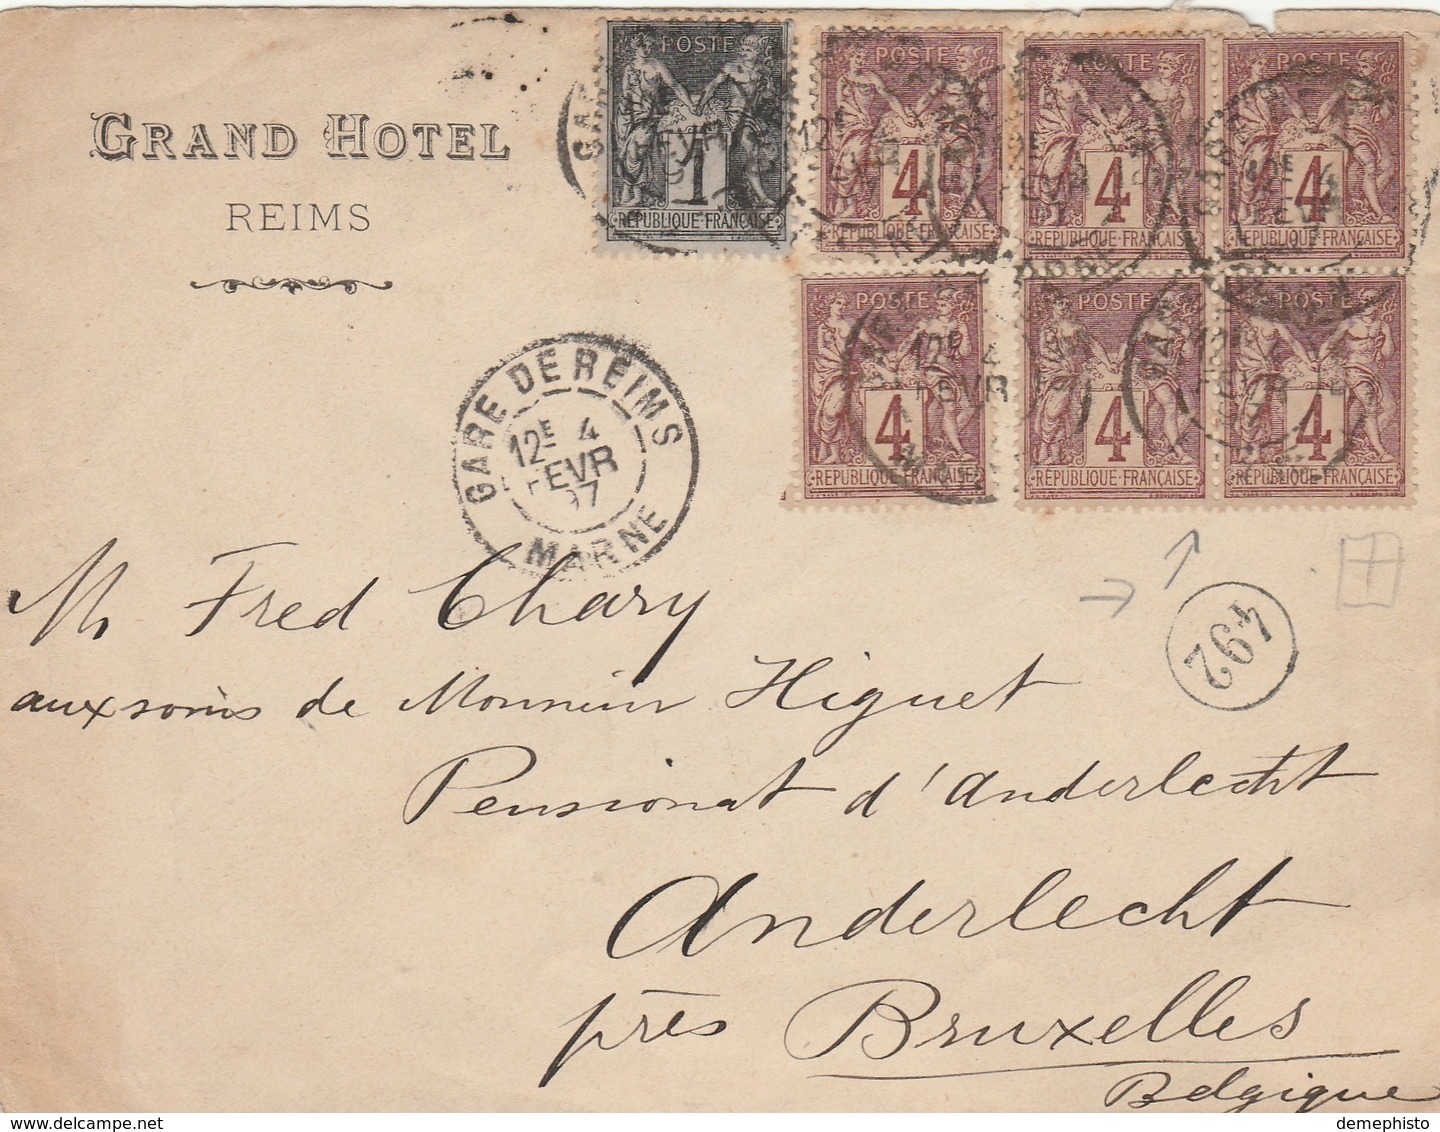 GRAND HOTEL
REIMS
POSTE
1
REPUBLIQUE FRANÇAISE
POSTE
4
REPUBLIQUE FRANÇAISE
POSTE
4
REPUBLIQUE FRANÇAISE
POSTE
4
REPUBLIQUE FRANÇAISE
POSTE
4
REPUBLIQUE FRANÇAISE
POSTE
4
REPUBLIQUE FRANÇAISE
POSTE
4
REPUBLIQUE FRANÇAISE
GARE DE REIMS
12E 4
FEVR
97
MARNE
492
Mr Fred Chary
aux soins de Monsieur Higuet
Pensionat d'Anderlecht
Anderlecht
près Bruxelles
Belgique
delcampe.net
demephisto